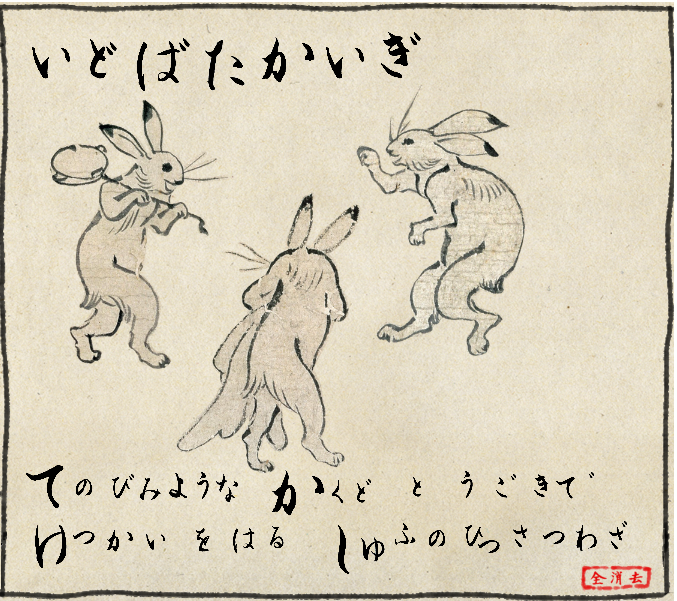 いどばたかいぎ
てのびみような かくど と うごきで
けつかい を はる しゅふの ひっさつわざ
全消去